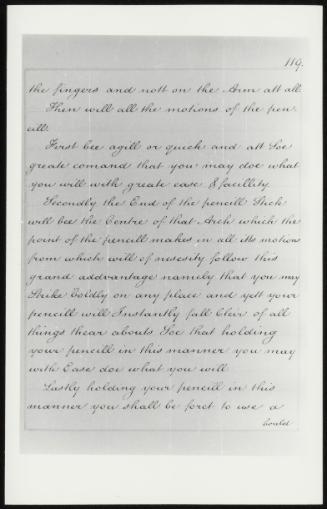 119.
the fingers and nott on the Arm att all.
Then will all the motions of the pen
cill.
First bee agill or quick and att Soe
greate comand that you may doe what
you will with greate ease & facillity.
Secondly the End of the pencill Stick
will bee the Centre of that Arch which the
point of the pencill makes in all its motions
from which will of necesity follow this
grand addvantage namely that you may
Strike Boldly on any place and yett your
pencill will Instantly fall Cleir of all
things thear abouts Soe that holding
your pencill in this manner you may
with Ease doe what you will
Lastly holding your pencill in this
manner you shall be forct to use a
bould